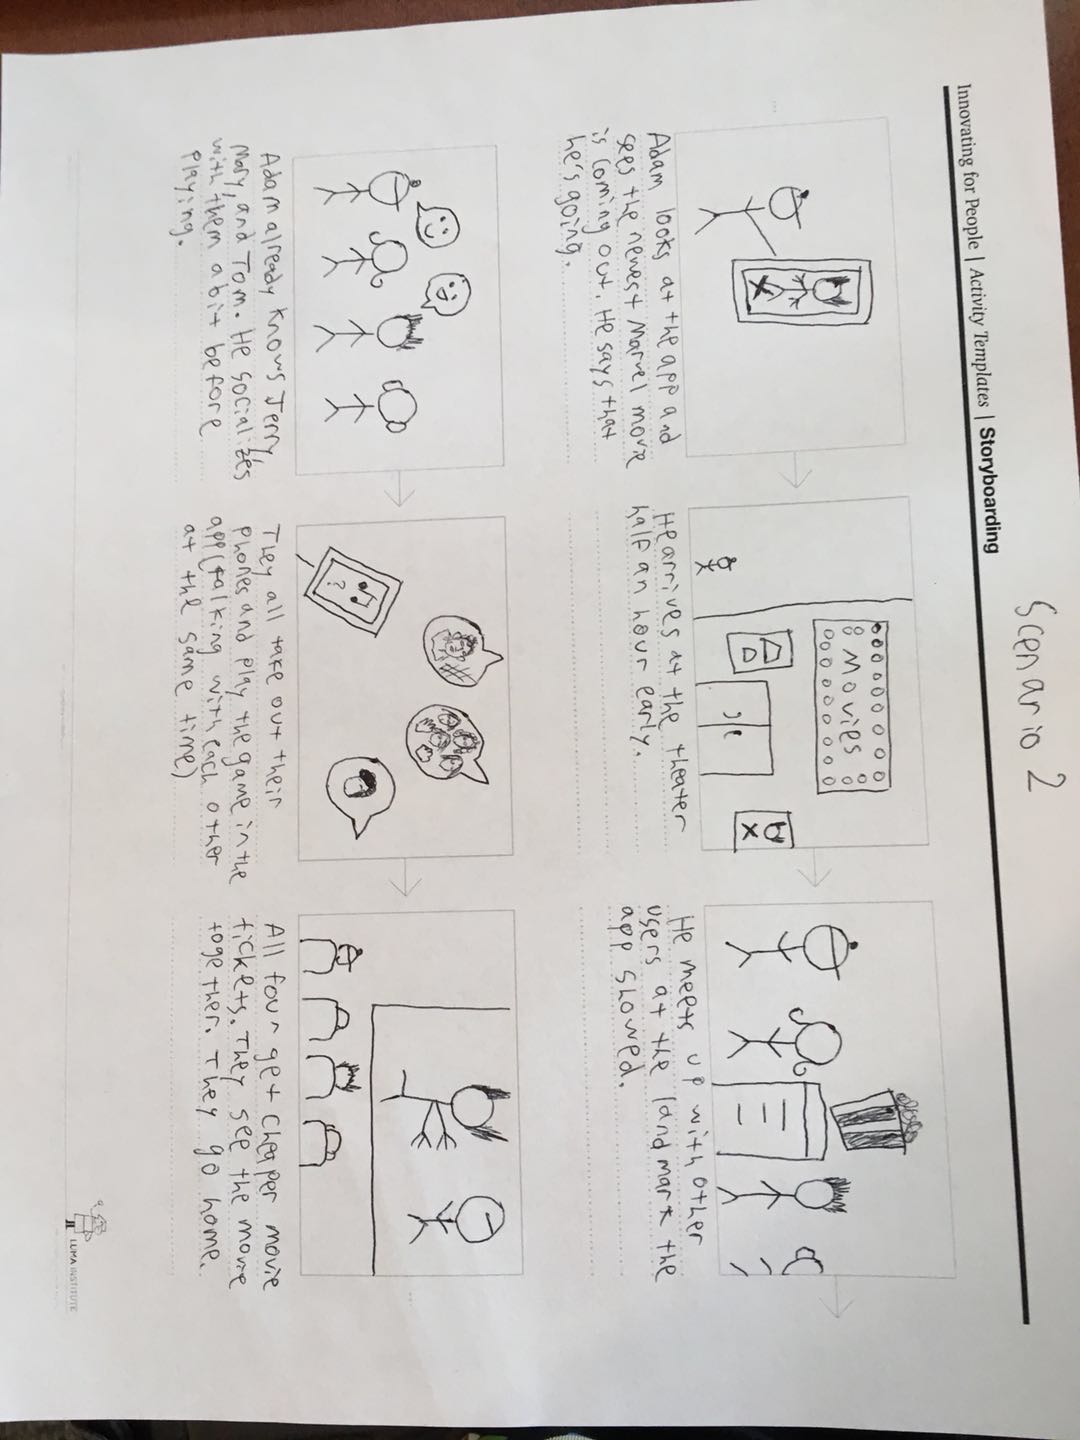 Scenario 2
Innovating for People | Activity Templates | Storyboarding
Adam looks at the app and
sees the newest Marvel movie
is coming out. He says that
he's going.
MOVIES
He arrives at the theater
half an hour early.
He meets up with other
users at the landmark the
app showed.
Adam already knows Jerry,
Mary, and Tom. He socializes
with them a bit before
playing.
?
They all take out their
phones and play the game in the
app (talking with each other
at the same time)
All four get cheaper movie
tickets. They see the movie
together. They go home.
LUMA INSTITUTE